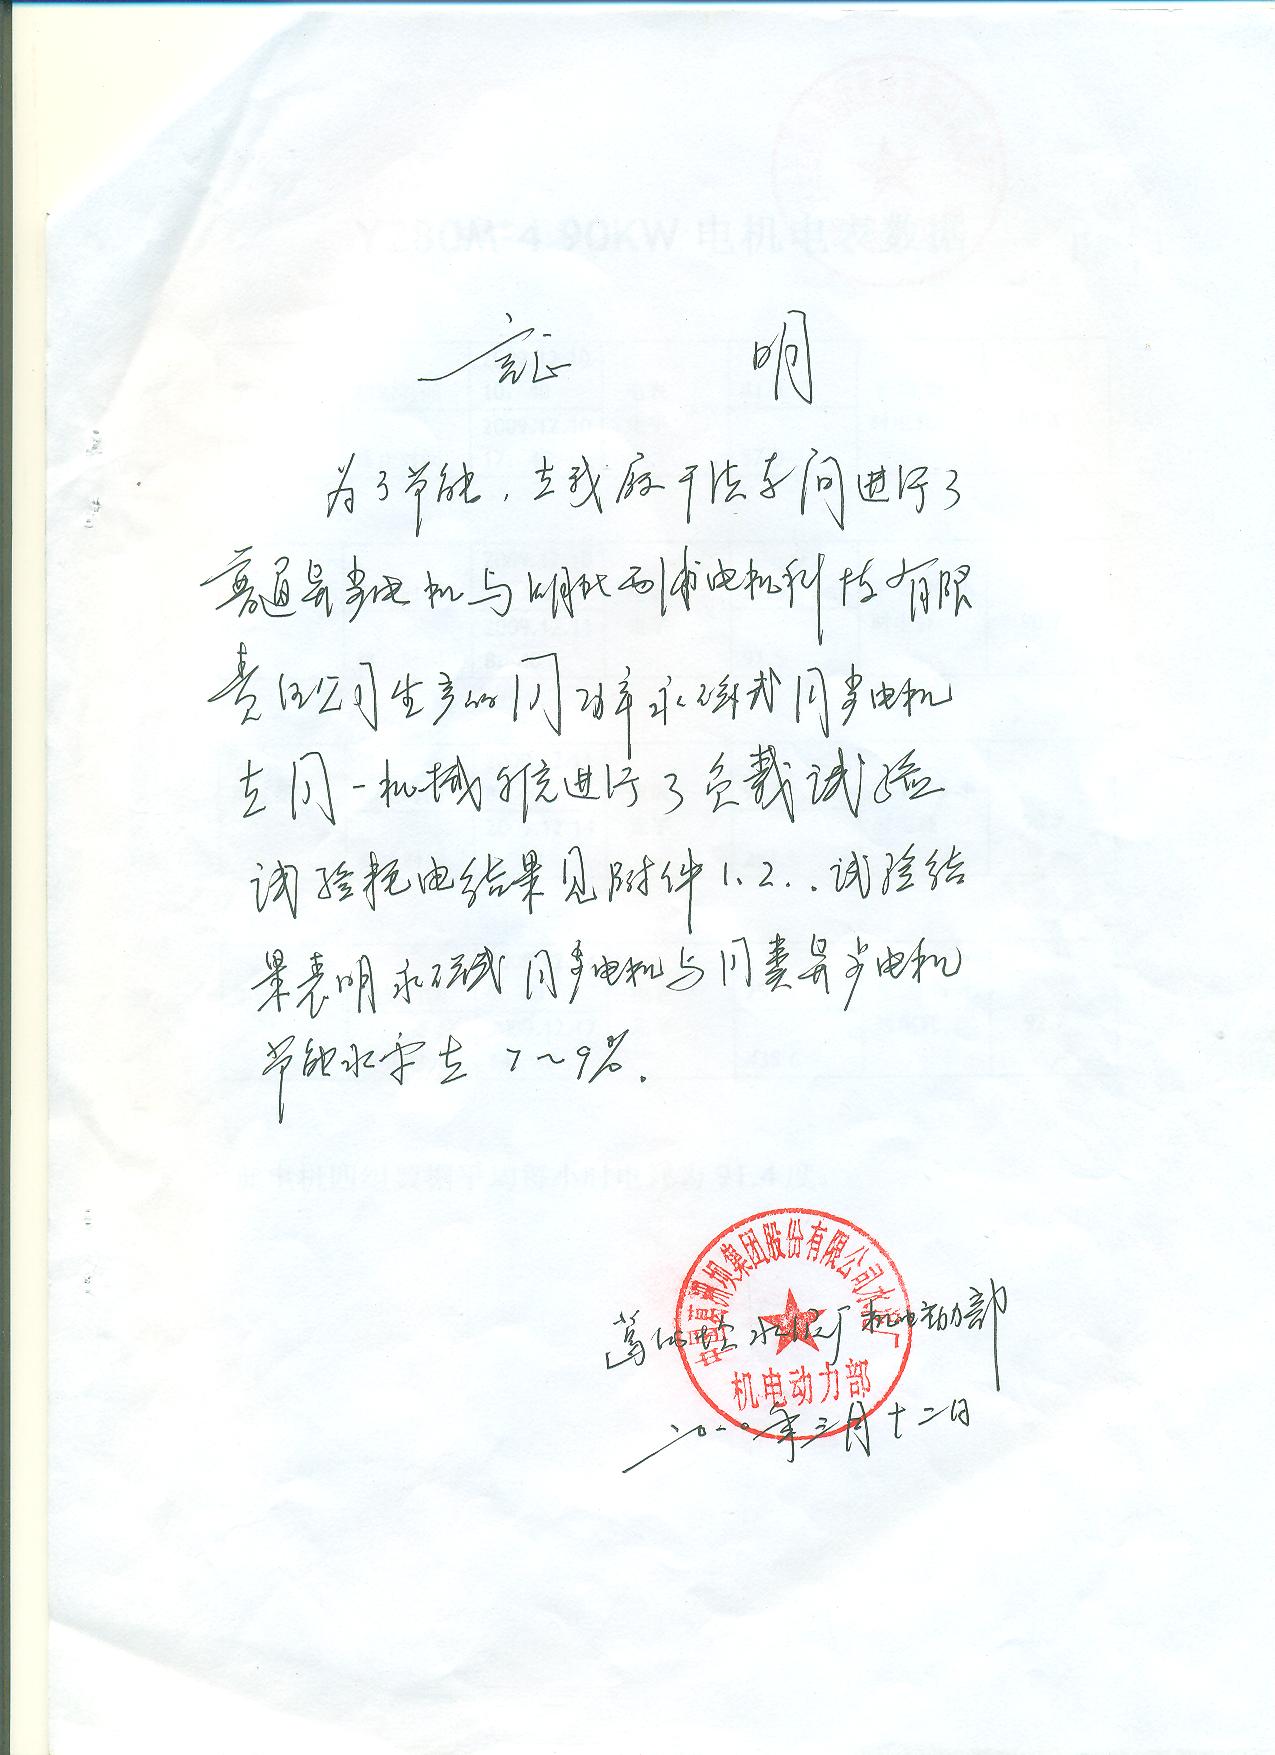 Y280M-4 90KW 电机电表数据
证 明
为了节能，在我厂干法车间进行了
普通异步电机与湖北西浦电机科技有限
责任公司生产的同功率永磁式同步电机
在同一机械系统进行了负载试验
试验耗电结果见附件1、2..试验结
果表明永磁式同步电机与同类异步电机
节能水平在7~9%.
葛洲坝集团股份有限公司水泥厂
机电动力部
葛洲坝水泥厂机电动力部
二0一0年三月十二日